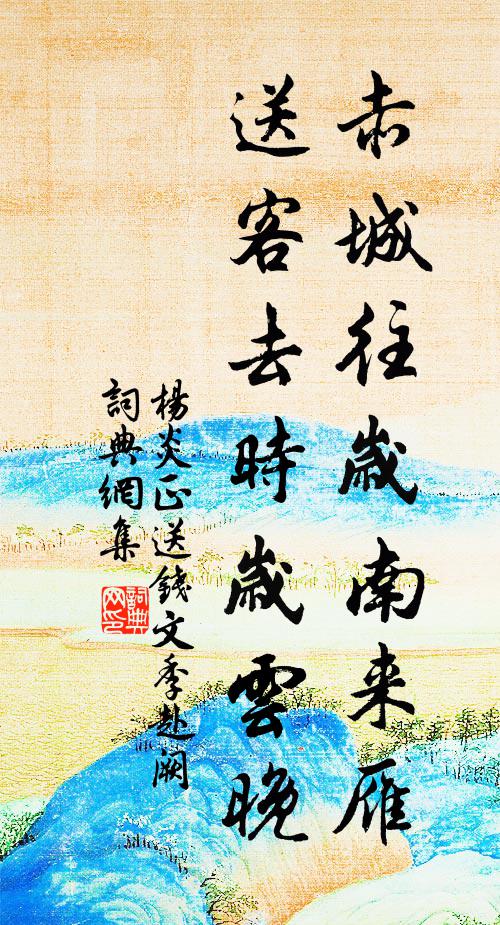 赤城往歲南来雁
送客去時歲雲晚
楊炎正送錢文季赴闕
詞典網集
詞典
网印